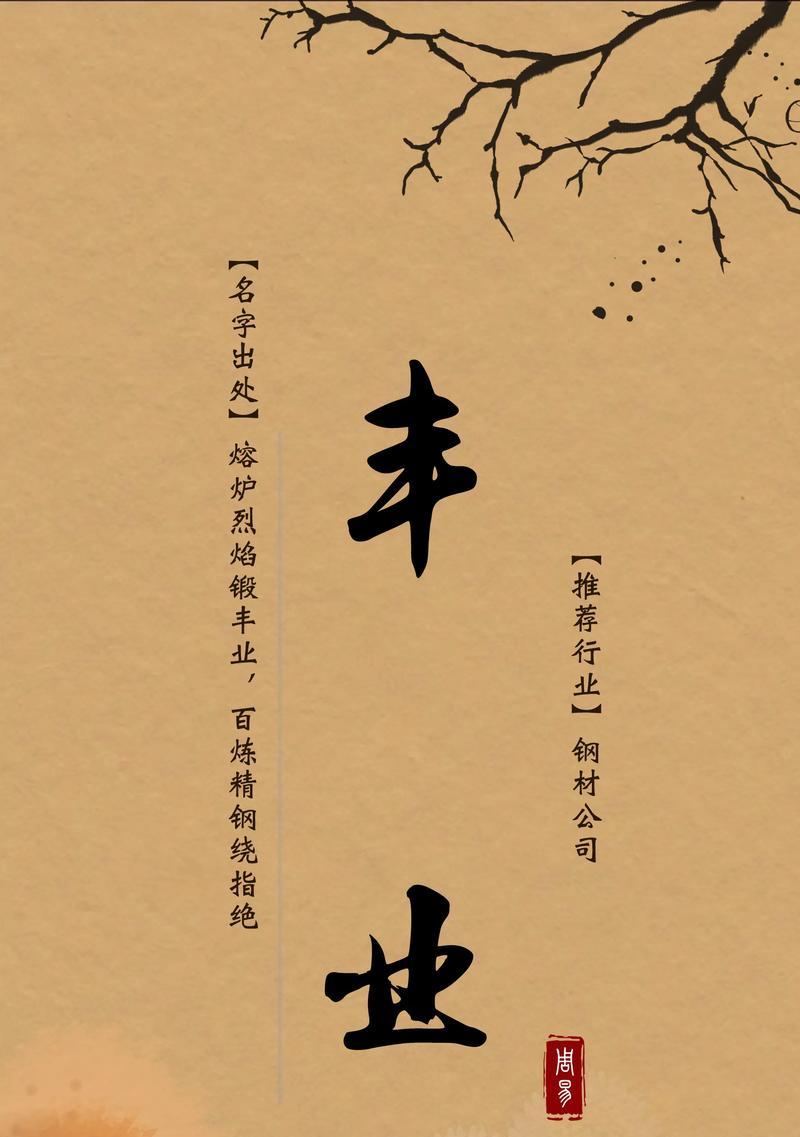 【推荐行业】钢材公司
丰业
【名字出处】熔炉烈焰锻丰业，百炼精钢绕指绝
周易